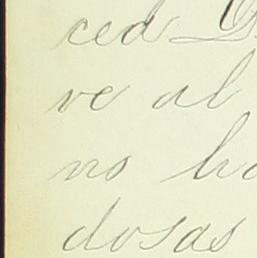 ced
ve al
no ha
dosas